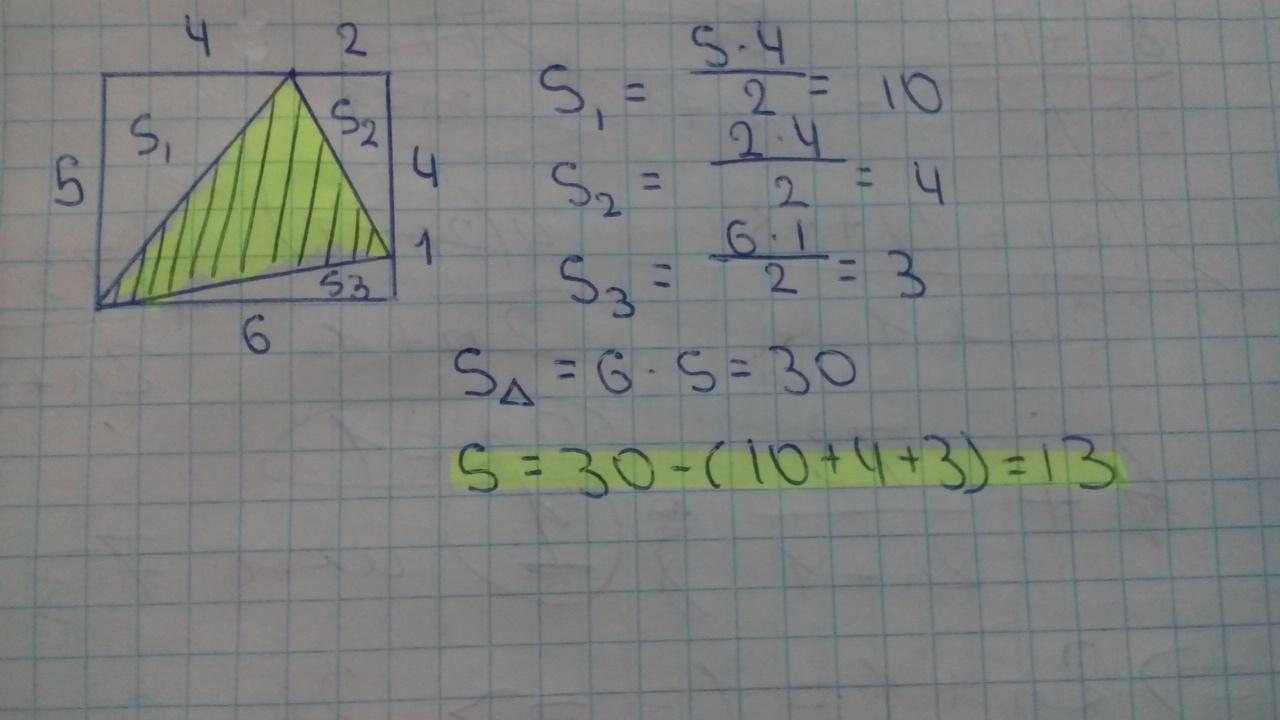 4 2
S₁ S₂
5 4
1
S3
6
S₁ = 5·4/2 = 10
S₂ = 2·4/2 = 4
S₃ = 6·1/2 = 3
S△ = 6·5 = 30
S = 30-(10+4+3)=13